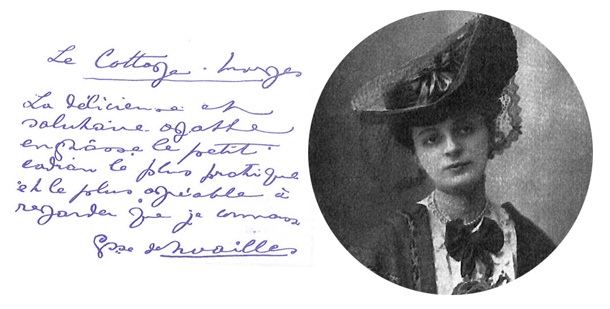 Le Cottage. Morges
La délicieuse et
salutaire agathe
enchâsse le petit
cadran le plus pratique
et le plus agréable à
regarder que je connais
Csse de Noailles